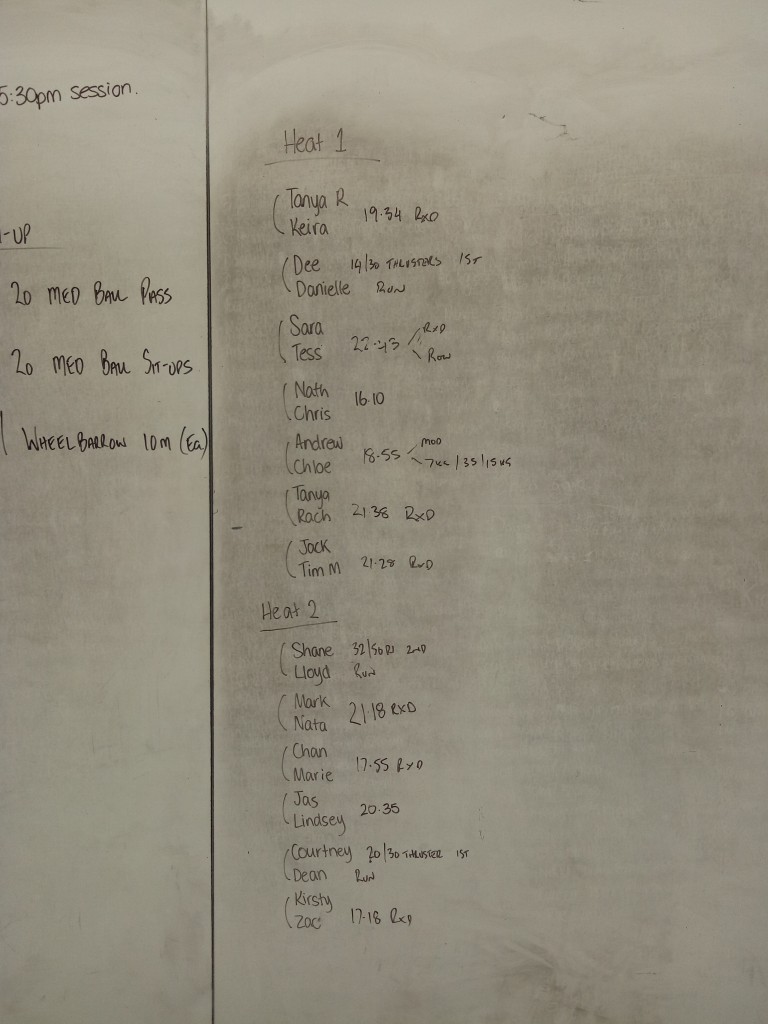 5:30pm session.
-UP
20 MED BALL PASS
20 MED BALL SIT-UPS
WHEELBARROW 10m (Ea)
Heat 1
Tanya R
Keira 19.34 RxD
Dee 14/30 THRUSTERS 1ST
Danielle RUN
Sara RxD
Tess 22.43 Row
Nath
Chris 16.10
Andrew MOD
Chloe 18.55 7KG/35/15KG
Tanya
Rach 21.38 RxD
Jack
Tim M 21.28 RxD
Heat 2
Shane 32/50 2ND
Lloyd RUN
Mark
Nata 21.18 RXD
Chan
Marie 17.55 RxD
Jas
Lindsey 20.35
Courtney 20/30 THRUSTER 1ST
Dean RUN
Kirsty
Zac 17.18 RxD